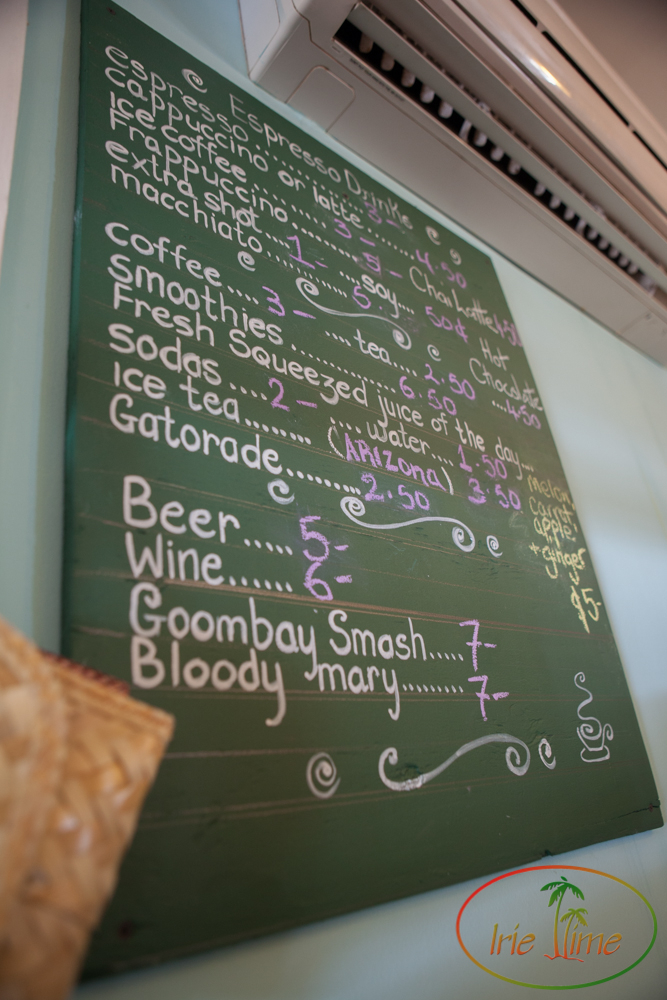 Espresso Drinks
espresso........ 3-
cappuccino or latte........ 4.50
Ice coffee........ 3-
Frappuccino......... 5- Chai Latte 4.50
extra shot... 1- ...soy... 50¢
macchiato........ 5. Hot Chocolate ....4.50
coffee.... 3- ....tea.... 2.50
Smoothies............ 6.50
Fresh Squeezed juice of the day...
melon
carrot
apple
+ginger
$5-
sodas..... 2- ...water.... 1.50
Ice tea........ (ARIZONA) 3.50
Gatorade......... 2.50
Beer..... 5-
Wine...... 6-
Goombay Smash..... 7-
Bloody mary........ 7-
Irie Time